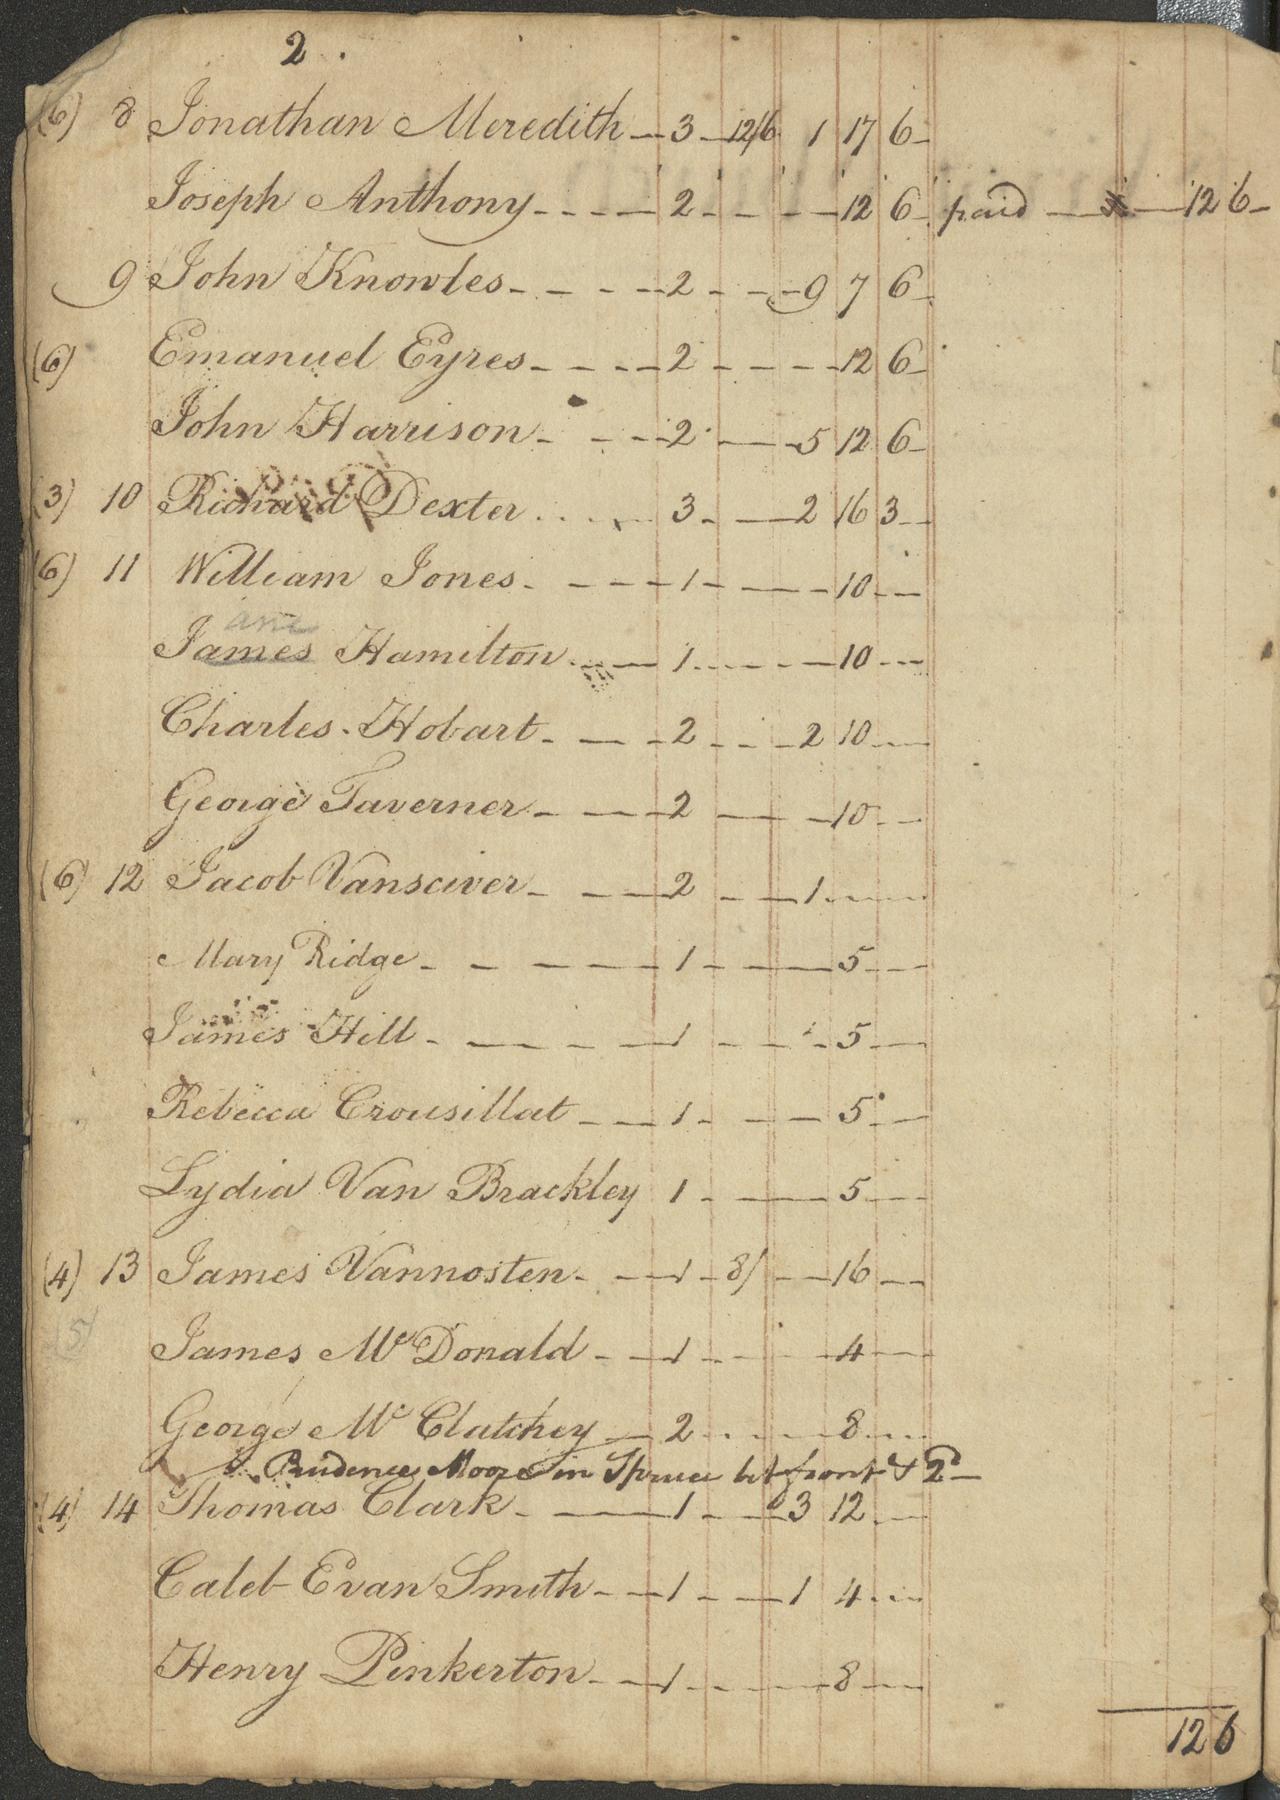 2.
(6) 8 Jonathan Meredith — 3 — 12/6 1 17 6 –
Joseph Anthony - - - — 2 - - - — 12 6 - paid — — 12 6 –
9 John Knowles - - - - 2 - - - 9 7 6 -
(6) Emanuel Eyres - - - - 2 - - - - 12 6 -
John Harrison - - - - 2 - — 5 12 6 –
(3) 10 Richard Dexter . . . . . 3 - — 2 16 3 - -
(6) 11 William Jones - - - - 1 - — - 10 - -
ane
James Hamilton - - — 1 - - - - — 10 - - -
Charles Hobart - — - 2 - - - 2 10 - -
George Taverner - — — 2 — — 10 - -
(6) 12 Jacob Vansciver - - — 2 - — 1 - - - -
Mary Ridge - - — — 1 - — — 5 - -
James Hill - — - - — 1 - - - 5 - —
Rebecca Crousillat - — 1 - - — 5 - —
Lydia Van Brackley 1 - — — 5 - -
(4) 13 James Vannosten - — 1 - 8/ - — 16 — -
(5)
James McDonald - — 1 - - — 4 - —
George McClatchey — 2 - - - - 8 - - -
Prudence Moore in Spruce bt front & 2d —
(4) 14 Thomas Clark - — — 1 - - — 3 12 - —
Caleb Evan Smith - - 1 - — 1 4 - - -
Henry Pinkerton - — 1 - - — — 8 - -
12 6